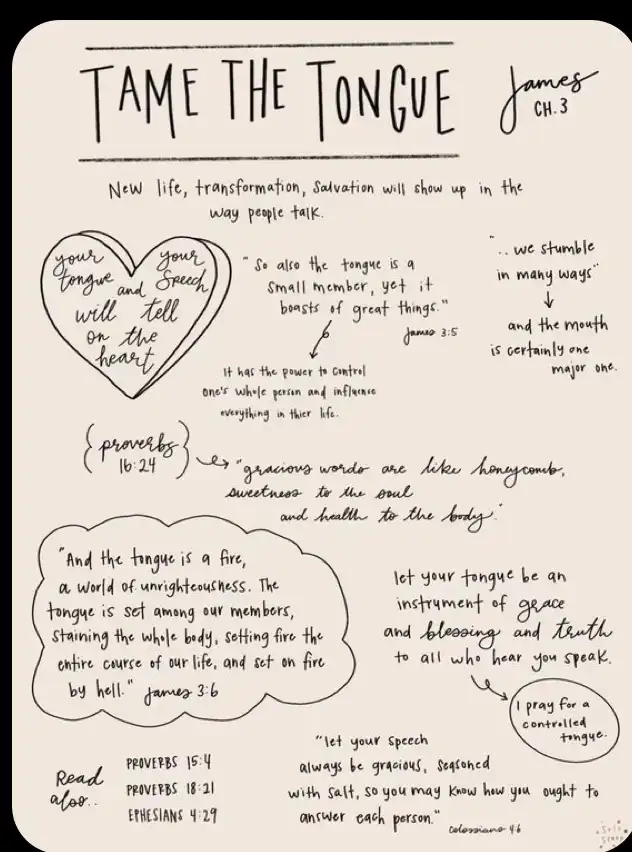 TAME THE TONGUE
James
CH. 3
New life, transformation, Salvation will show up in the
way people talk.
your your
tongue and Speech
will tell
on the
heart
"So also the tongue is a
small member, yet it
boasts of great things."
James 3:5
It has the power to control
one's whole person and influence
everything in thier life.
".. we stumble
in many ways"
and the mouth
is certainly one
major one.
{proverbs
16:24}
"gracious words are like honeycomb,
sweetness to the soul
and health to the body."
"And the tongue is a fire,
a world of unrighteousness. The
tongue is set among our members,
staining the whole body, setting fire the
entire course of our life, and set on fire
by hell." James 3:6
let your tongue be an
instrument of grace
and blessing and truth
to all who hear you speak.
I pray for a
controlled
tongue.
Read
also..
PROVERBS 15:4
PROVERBS 18:21
EPHESIANS 4:29
"let your speech
always be gracious, seasoned
with salt, so you may know how you ought to
answer each person."
Colossians 4:6